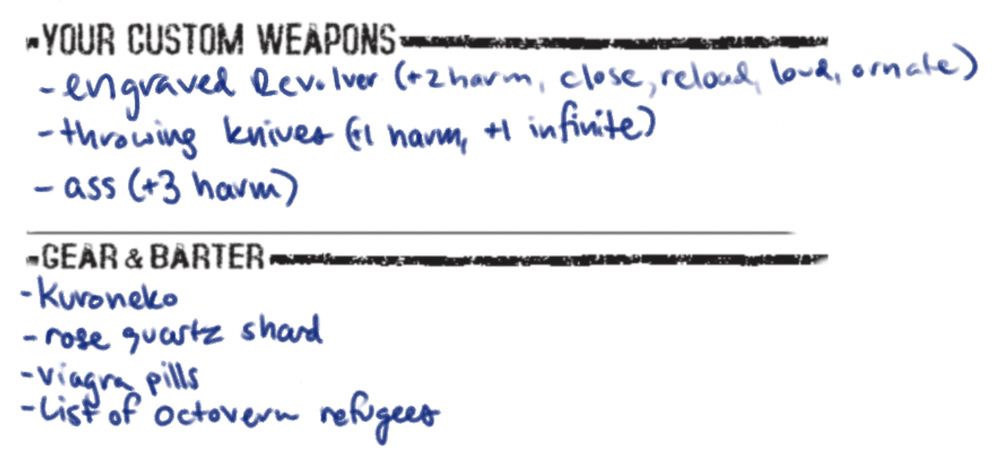 YOUR CUSTOM WEAPONS
- engraved Revolver (+2harm, close, reload, loud, ornate)
- throwing knives (+1 harm, +1 infinite)
- ass (+3 harm)
GEAR & BARTER
- Kuroneko
- rose quartz shard
- viagra pills
- List of Octovern refugees